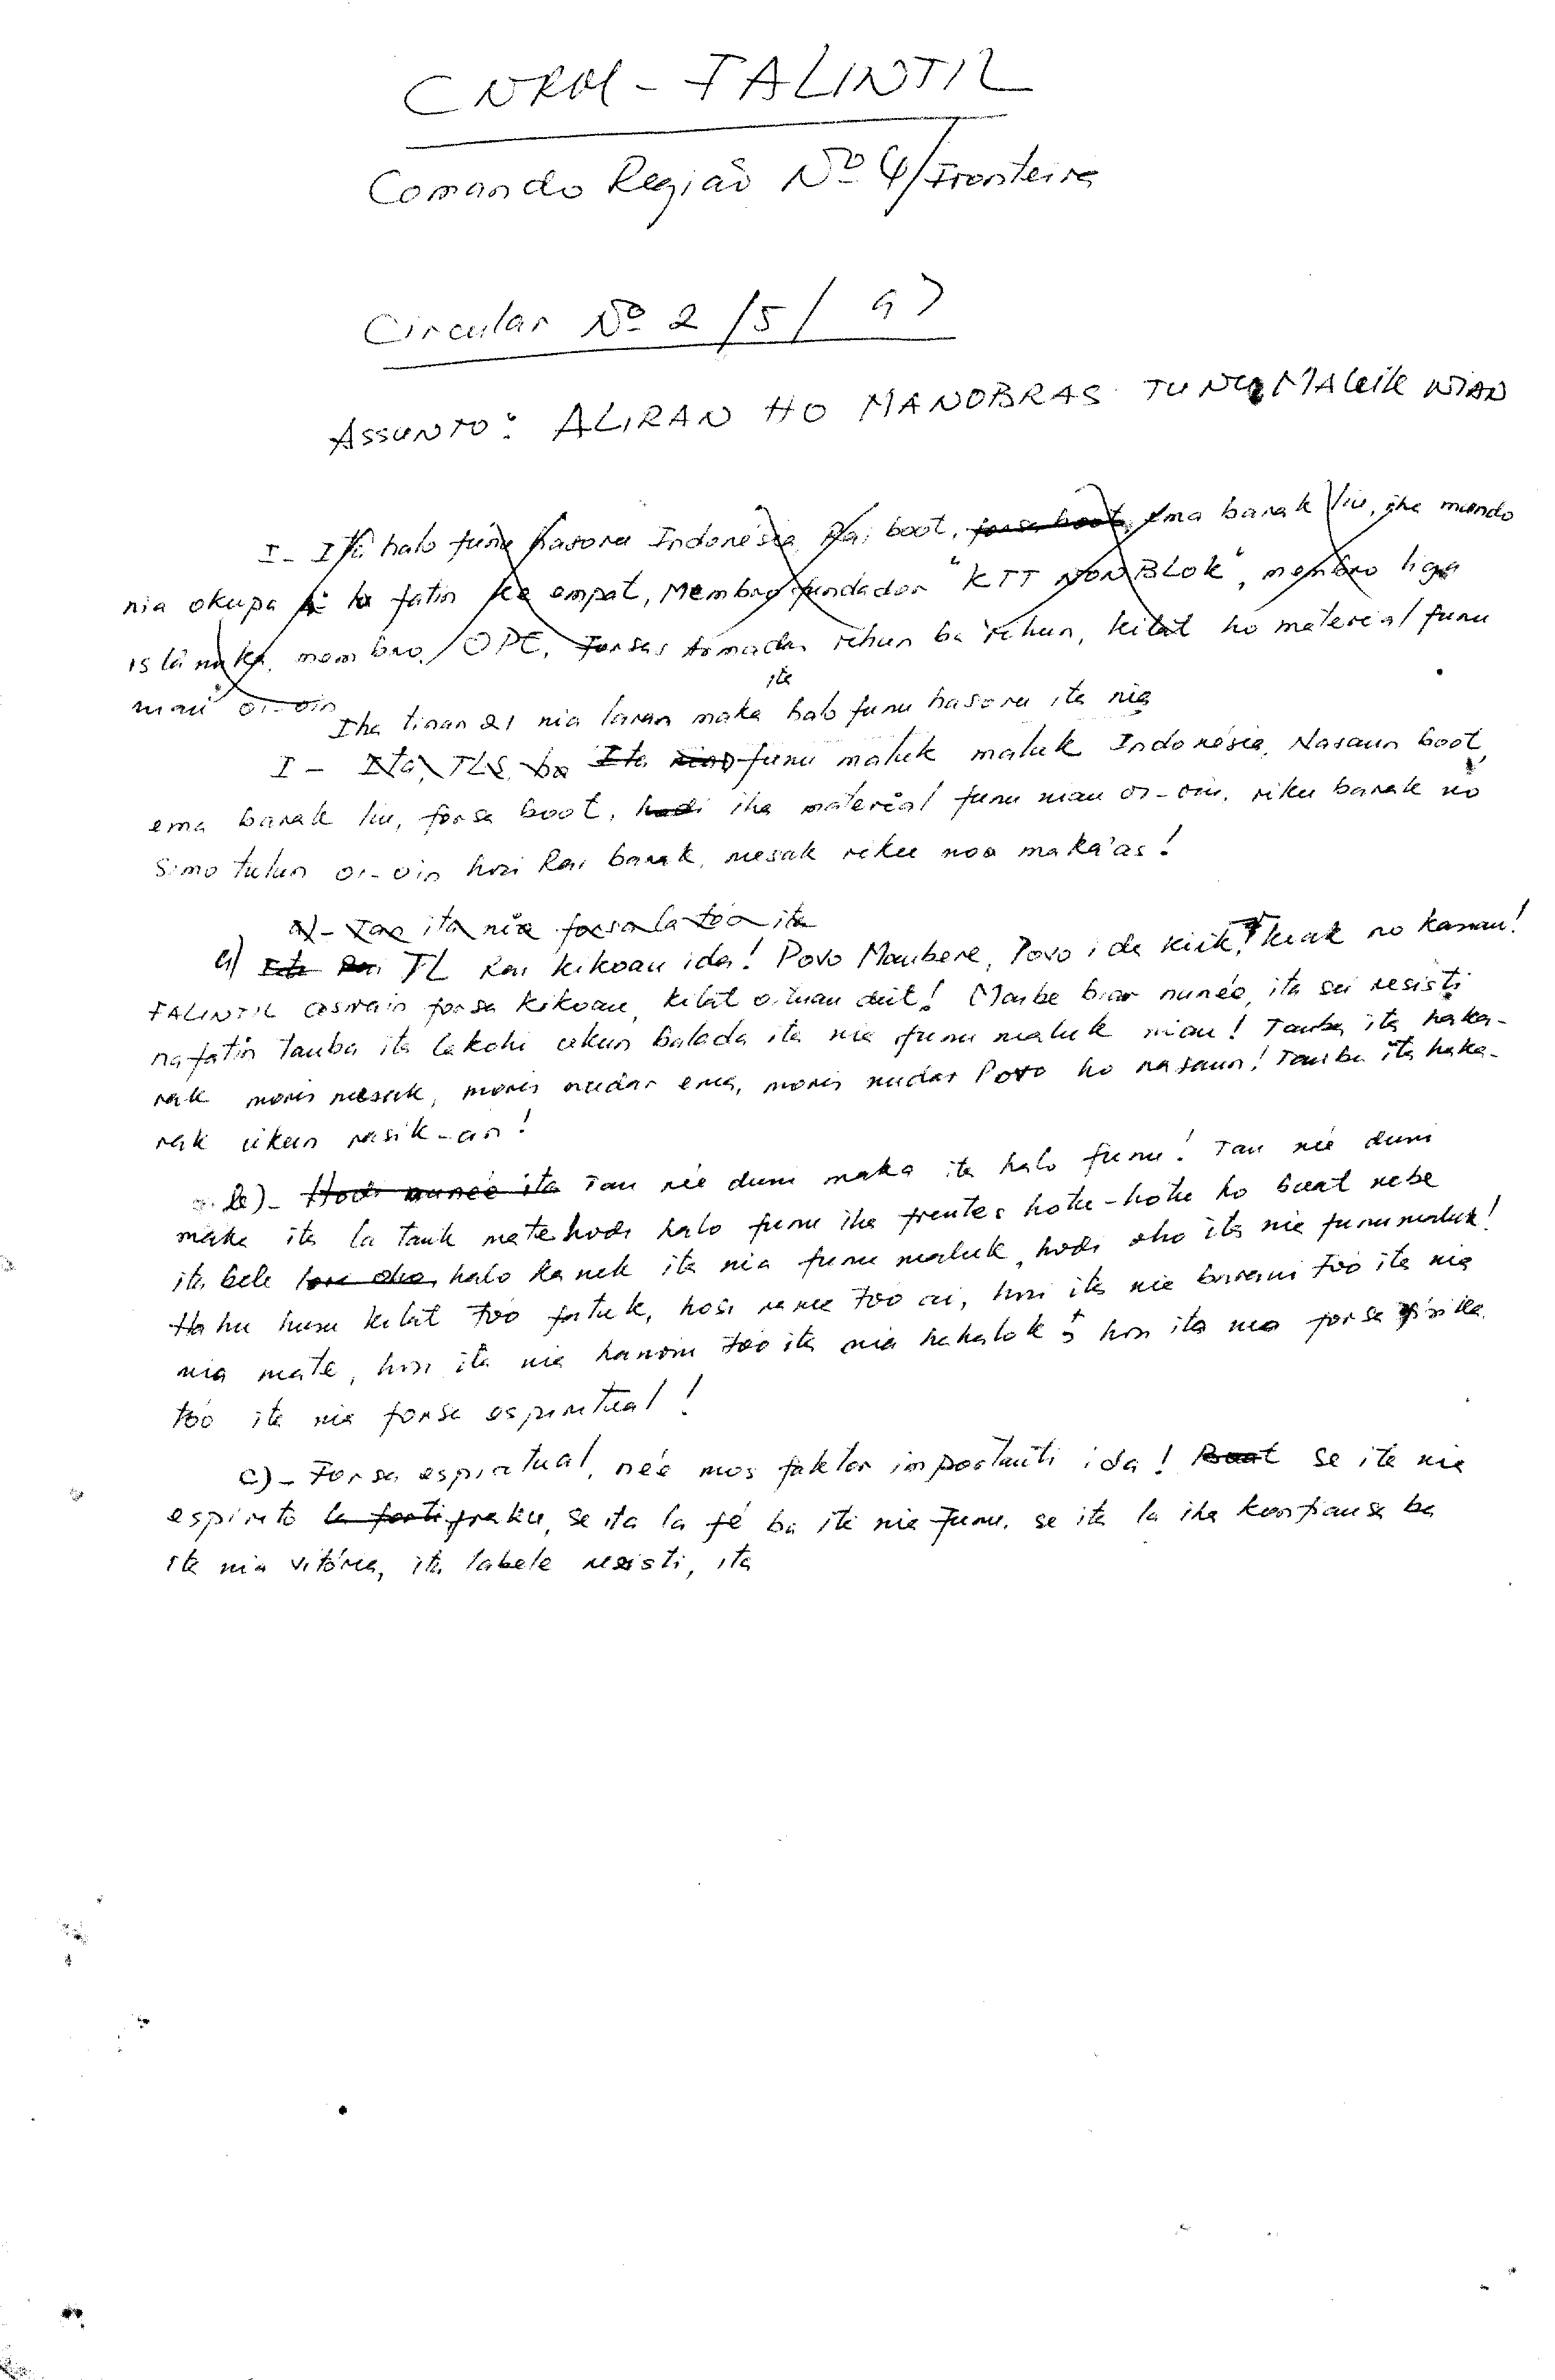 CNRM - FALINTIL
Comando Região Nº 4/Fronteira
Circular Nº 2/5/97
ASSUNTO: ALIRAN HO MANOBRAS FUNU MALUK NIAN
I- Ita halo funu hasoru Indonésia, Rai boot, forsa boot, ema barak liu, iha mundo
nia okupa fatin ke empat, Membro fundador "KTT NON BLOK", membro liga
islámika, membro OPE, Forsas Armadas rihun ba rihun, kilat ho material funu
nian oi-oin
Iha tinan 21 nia laran maka ita halo funu hasoru ita nia
I - Ita, TLS, ba Ita nia funu maluk maluk Indonésia, Nasaun boot,
ema barak liu, forsa boot, hodi iha material funu nian oi-oin, riku barak no
simo tulun oi-oin hosi Rai barak, mesak riku noo maka'as!
a)- Tan ita nia forsa la too ita
a) Ita Rai TL Rai kikoan ida! Povo Maubere, Povo ida kiik, kiak no kanan!
FALINTIL aswain forsa kikoan, kilat oituan deit! Maibe biar nunéé, ita sei resisti
nafatin tanba ita lakohi ukun balada ita nia funu maluk nian! Tanba ita haka-
rak moris mesak, moris nudar ema, moris nudar Povo ho nasaun! Tamba ita haka-
rak ukun rasik-an!
b)- Hodi nunéé ita Tan néé duni maka ita halo funu! Tan néé duni
maka ita la tauk mate hodi halo funu iha frentes hotu-hotu ho buat nebe
ita bele halo kanek ita nia funu maluk, hodi oho ita nia funu maluk!
Hahu husu kilat too fatuk, hosi rama too ai, hosi ita nia barani too ita nia
nia mate, hosi ita nia hanoin too ita nia hahalok, hosi ita nia forsa fízika
too ita nia forsa espiritual!
c)- Forsa espiritual, néé mos faktor importanti ida! Buat se ita nia
espírito la forti fraku, se ita la fé ba ita nia funu, se ita la iha konfiansa ba
ita nia vitória, ita labele resisti, ita